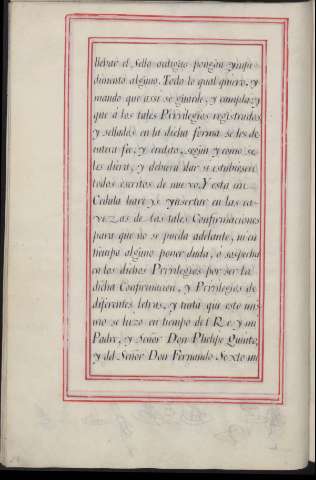 llebar el Sello ordigan pongan ympe-
dimento alguno. Todo lo qual quiero, y
mando que assi se guarde, y cumpla: y
que â los tales Privilegios registrados
y sellados en la dicha forma se les de
entera fee, y credito, según y como se
les diera, y debiera dar si estubiesen
todos escritos de nuevo. Y esta mi
Cedula hareys ynsertar en las ca-
vezas de las tales Confirmaciones
para que no se pueda adelante, ni en
tiempo alguno poner duda, ô sospecha
en los dichos Privilegios por ser la
dicha Confirmacion, y Privilegios de
diferentes letras, y tinta que esto mis-
mo se hizo en tiempo del Rey mi
Padre, y Señor Don Phelipe Quinto,
y del Señor Don Fernando Sexto mi